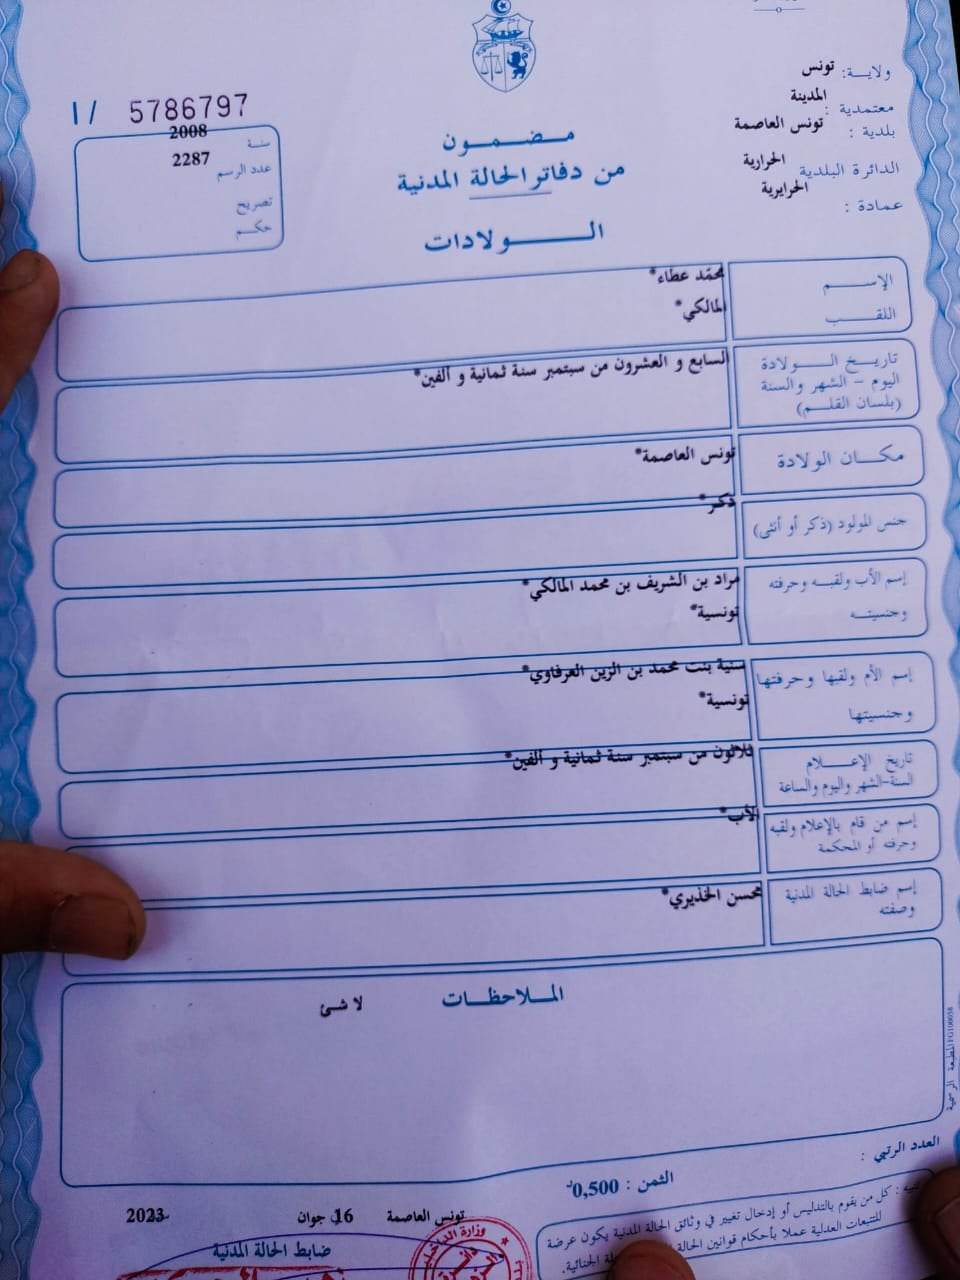 ولاية: تونس
معتمدية : المدينة
بلدية : تونس العاصمة
الدائرة البلدية الحرارية
عمادة : الحرايرية
I/ 5786797
سنة 2008
عدد الرسم 2287
تصريح
حكم
مضمون
من دفاتر الحالة المدنية
الولادات
الإسم محمّد عطاء*
اللقب المالكي*
تاريخ الولادة السابع و العشرون من سبتمبر سنة ثمانية و ألفين*
اليوم - الشهر والسنة
(بلسان القلم)
مكان الولادة تونس العاصمة*
جنس المولود (ذكر أو أنثى) ذكر*
إسم الأب ولقبه وحرفته مراد بن الشريف بن محمد المالكي*
وجنسيته تونسية*
إسم الأم ولقبها وحرفتها سنية بنت محمد بن الزين العرفاوي*
وجنسيتها تونسية*
تاريخ الإعلام ثلاثون من سبتمبر سنة ثمانية و ألفين*
السنة-الشهر واليوم والساعة
إسم من قام بالإعلام ولقبه الأب*
وحرفته أو المحكمة
إسم ضابط الحالة المدنية محسن الخذيري*
وصفته
الملاحظات
لا شئ
المطبعة الرسمية
العدد الرتبي :
الثمن : 0,500د
كل من يقوم بالتدليس أو إدخال تغيير في وثائق الحالة المدنية يكون عرضة
للتتبعات العدلية عملا بأحكام قوانين الحالة
الجنائية.
تونس العاصمة 16 جوان 2023
ضابط الحالة المدنية
وزارة الداخلية